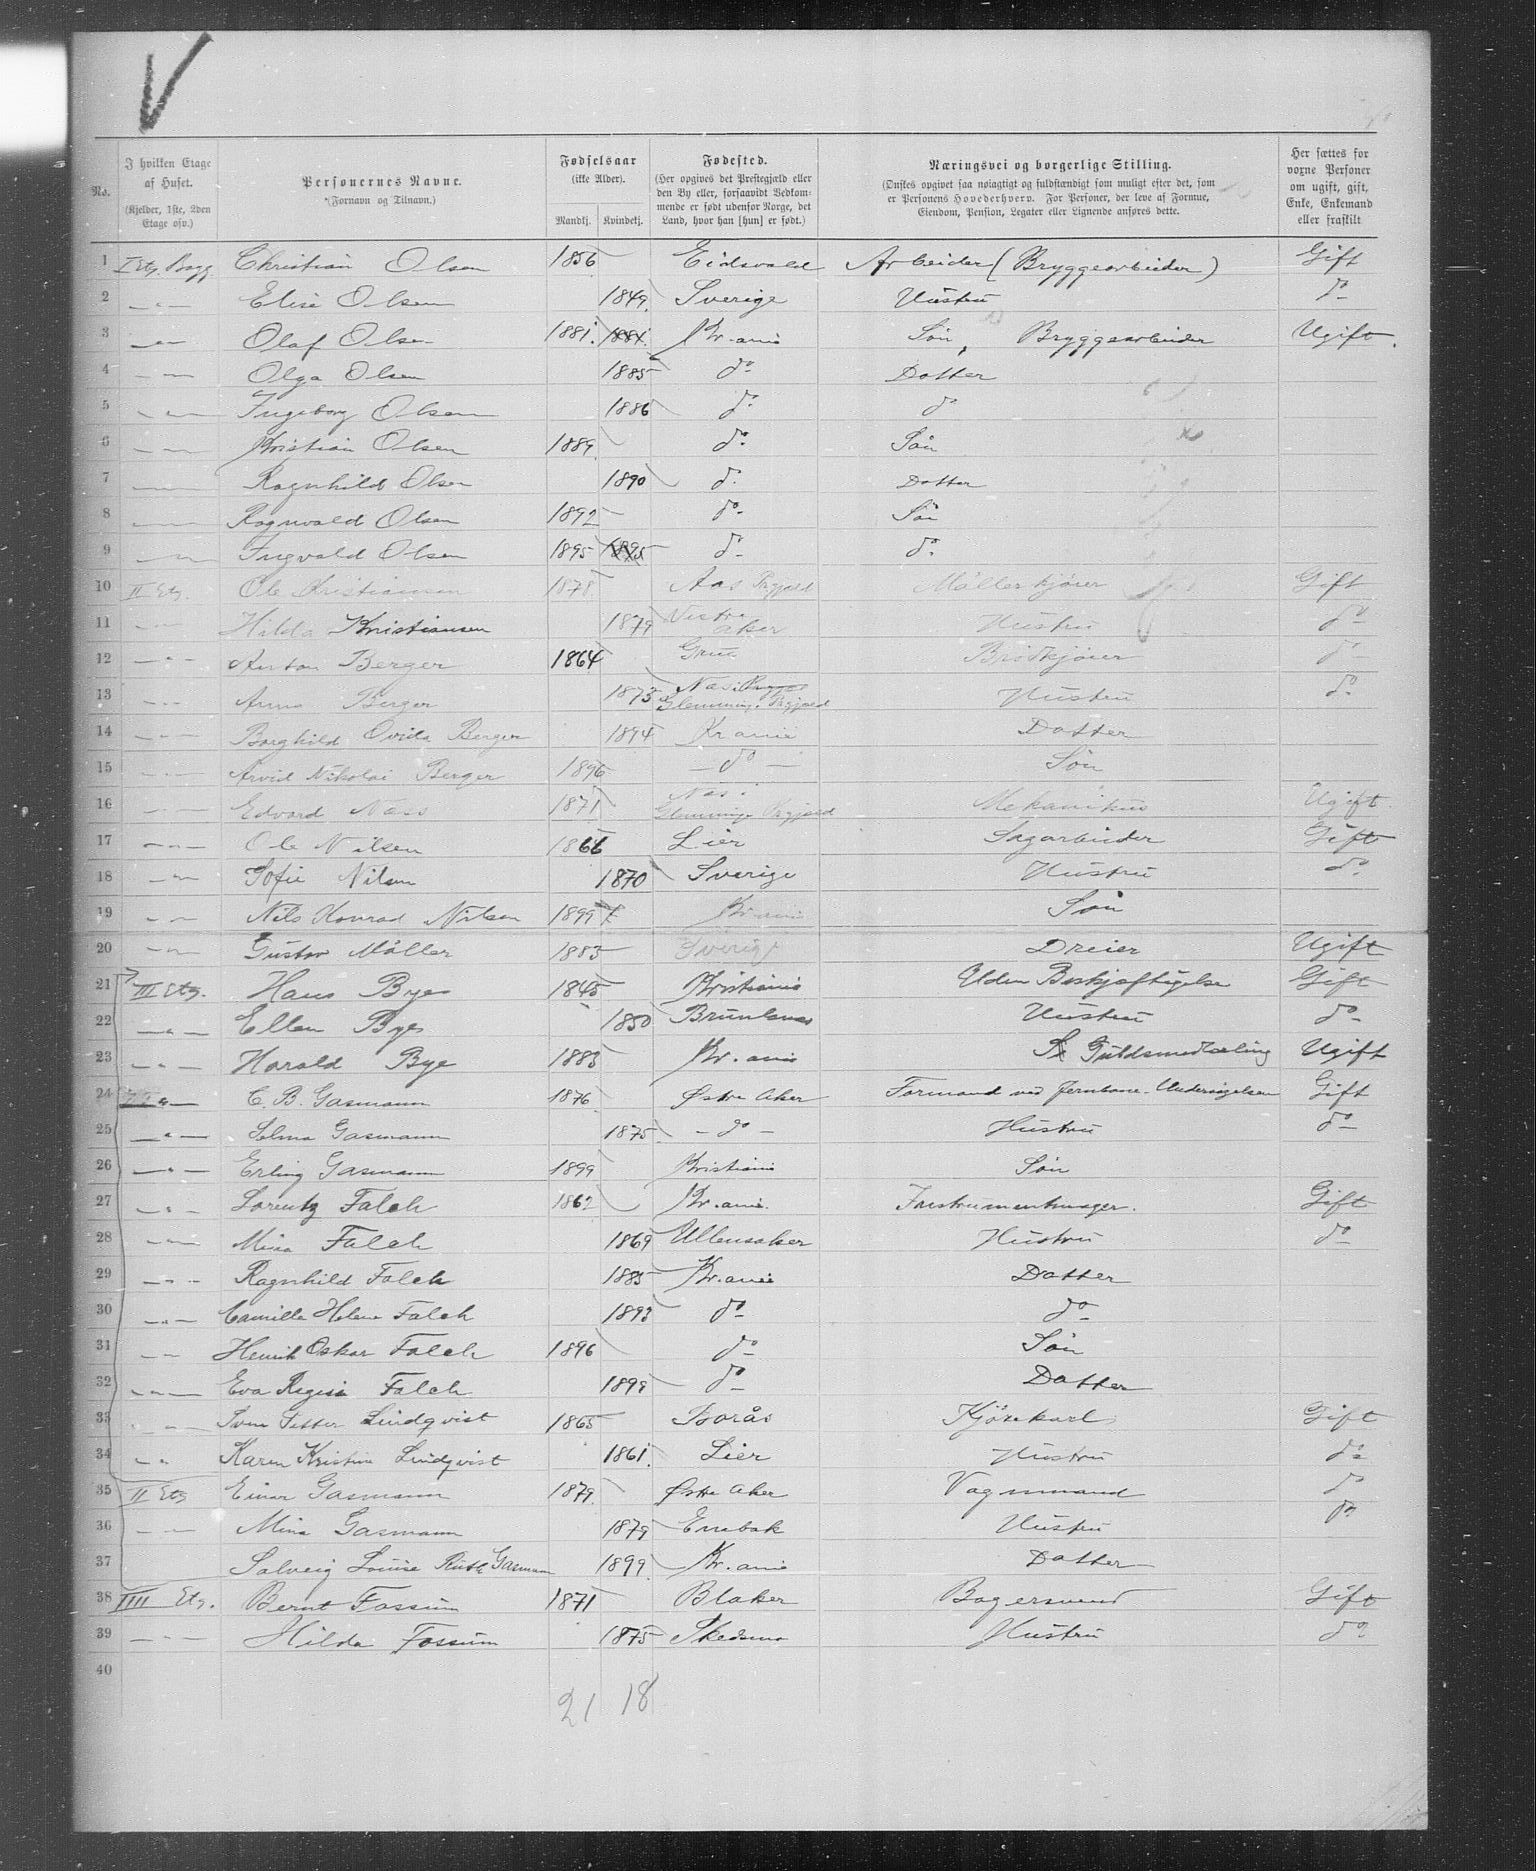 No.
I hvilken Etage af Huset.
(Kjelder, 1ste, 2den Etage osv.)
Personernes Navne.
(Fornavn og Tilnavn.)
Fødselsaar
(ikke Alder).
Mandkj. Kvindekj.
Fødested.
(Her opgives det Prestegjæld eller den By eller, forsaavidt Vedkommende er født udenfor Norge, det Land, hvor han [hun] er født.)
Næringsvei og borgerlige Stilling.
(Ønskes opgivet saa nøiagtigt og fuldstændigt som muligt efter det, som er Personens Hovederhverv. For Personer, der leve af Formue, Eiendom, Pension, Legater eller Lignende anføres dette.
Her sættes for voxne Personer om ugift, gift, Enke, Enkemand eller fraskilt
1 I Etg. Bagg. Christian Olsen 1856 Eidsvold Arbeider (Bryggearbeider) Gift
2 —„— Elise Olsen 1849 Sverige Hustru do
3 —„— Olaf Olsen 1881 1881 Kr.ania Søn, Bryggearbeider Ugift.
4 —„— Olga Olsen 1885 do Datter
5 —„— Ingeborg Olsen 1886 do do
6 —„— Kristian Olsen 1889 do Søn
7 —„— Ragnhild Olsen 1890 do Datter
8 —„— Ragnvald Olsen 1892 do Søn
9 —„— Ingvald Olsen 1895 1895 do do
10 II Etg. Ole Kristiansen 1878 Aas Prgjæld Møllerkjører Gift
11 —„— Hilda Kristiansen 1879 Vestre Aker Hustru do
12 —„— Anton Berger 1864 Grue Brødkjører do
13 —„— Anna Berger 1873 Næs Glemminge Prgjæld Hustru do
14 —„— Borghild Ovida Berger 1894 Kr ania Datter
15 —„— Arvid Nikolai Berger 1896 —do— Søn
16 —„— Edvard Næss 1871 Næs i Glemminge Prgjæld Mekanikus Ugift.
17 —„— Ole Nilsen 1866 Lier Sagarbeider Gift
18 —„— Sofie Nilsen 1870 Sverige Hustru do
19 —„— Nils Konrad Nilsen 1899 Kr ania Søn
20 —„— Gustav Møller 1883 Sverige Dreier Ugift
21 III Etg. Hans Bye 1845 Kristiania Uden Beskjæftigelse Gift
22 —„— Ellen Bye 1850 Brunlanæs Hustru do
23 —„— Harald Bye 1883 Kr.ania Guldsmedlærling Ugift
24 —„— C. B. Gasmann 1876 Østre Aker Formand ved Jernbane-Undersøgelsen Gift
25 —„— Selma Gasmann 1875 —do— Hustru do
26 —„— Erling Gasmann 1899 Kristiania Søn
27 —„— Lorentz Falch 1862 Kr.ania. Instrumentmager. Gift
28 —„— Mina Falch 1869 Ullensaker Hustru do
29 —„— Ragnhild Falch 1885 Kr.ania Datter
30 —„— Camilla Helene Falch 1893 do do
31 —„— Henrik Oskar Falch 1896 do Søn
32 —„— Eva Regina Falch 1899 do Datter
33 —„— Sven Petter Lindqvist 1865 Borås Kjørekarl Gift
34 —„— Karen Kristine Lindqvist 1861 Lier Hustru do
35 II Etg Einar Gasmann 1879 Østre Aker Vognmand do
36 —„— Mina Gasmann 1879 Enebak Hustru do
37 Solveig Louise Ruth Gasmann 1899 Kr.ania Datter
38 IIII Etg. Bernt Fossum 1871 Blaker Bagersvend Gift
39 —„— Hilda Fossum 1875 Skedsmo Hustru do
40
21 18